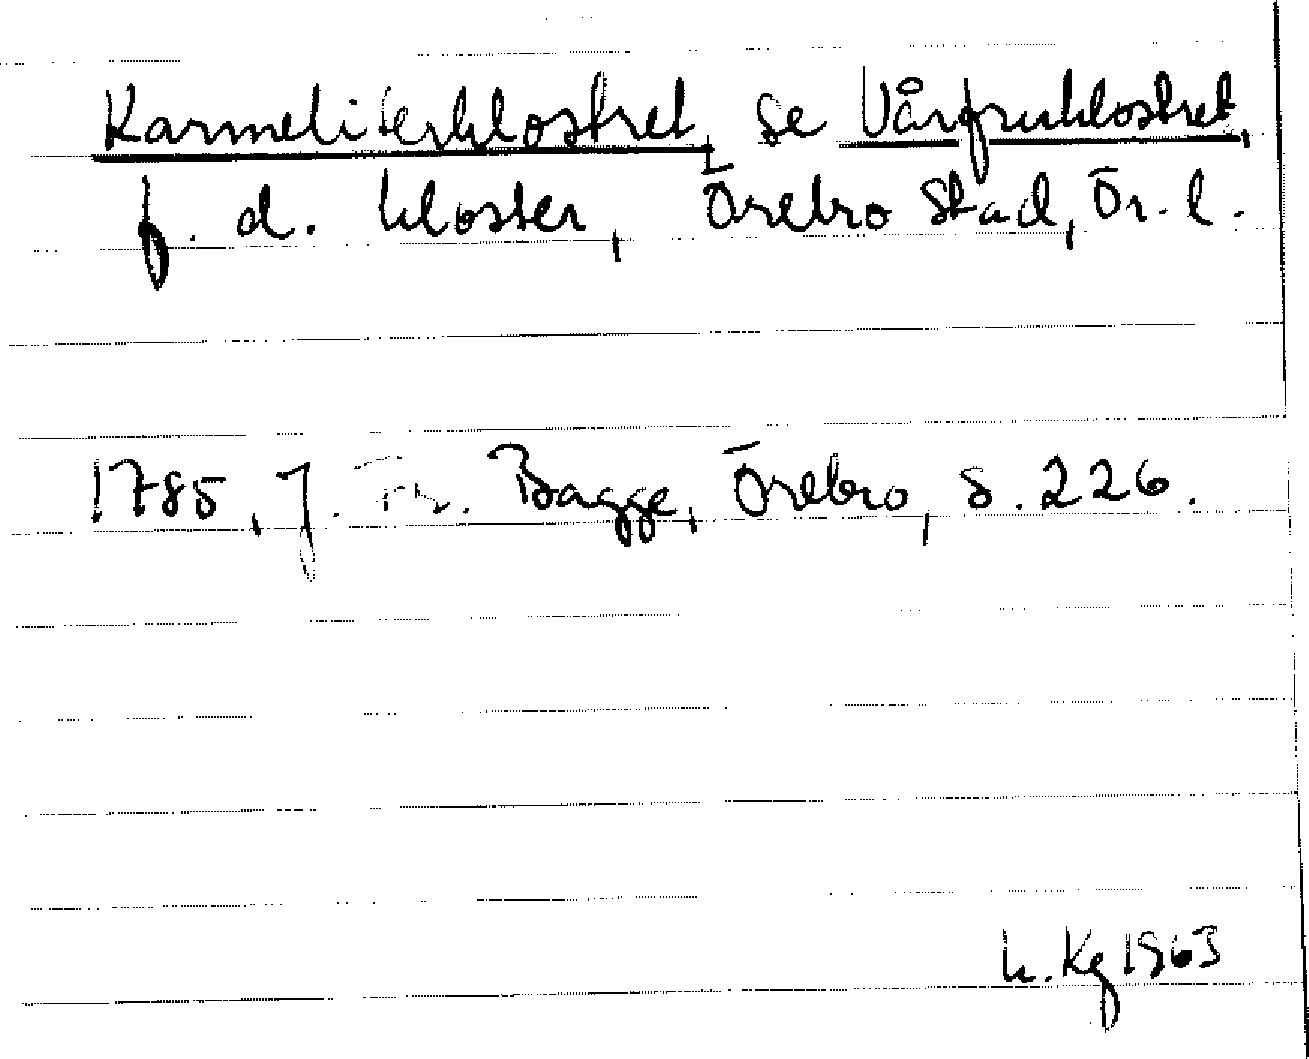 Karmeliterklostret, se Vårfruklostret,
f. d. kloster, Örebro stad, Ör. l.
1785, J. Fr. Bagge, Örebro, s. 226.
h. Kg 1963